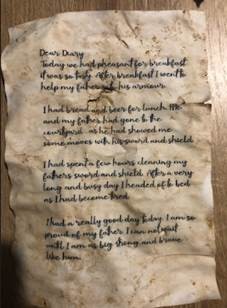 Dear Diary
Today we had pheasant for breakfast
it was so tasy. After breakfast I went to
help my father with his armour.
I had bread and beer for lunch. Me
and my father had gone to the
courtyard as he had showed me
some moves with his sword and shield.
I had spent a few hours cleaning my
fathers sword and shield. After a very
long and busy day I headed of to bed
as I had become tired.
I had a really good day today. I am so
proud of my father. I can not wait
until I am as big strong and brave
like him.